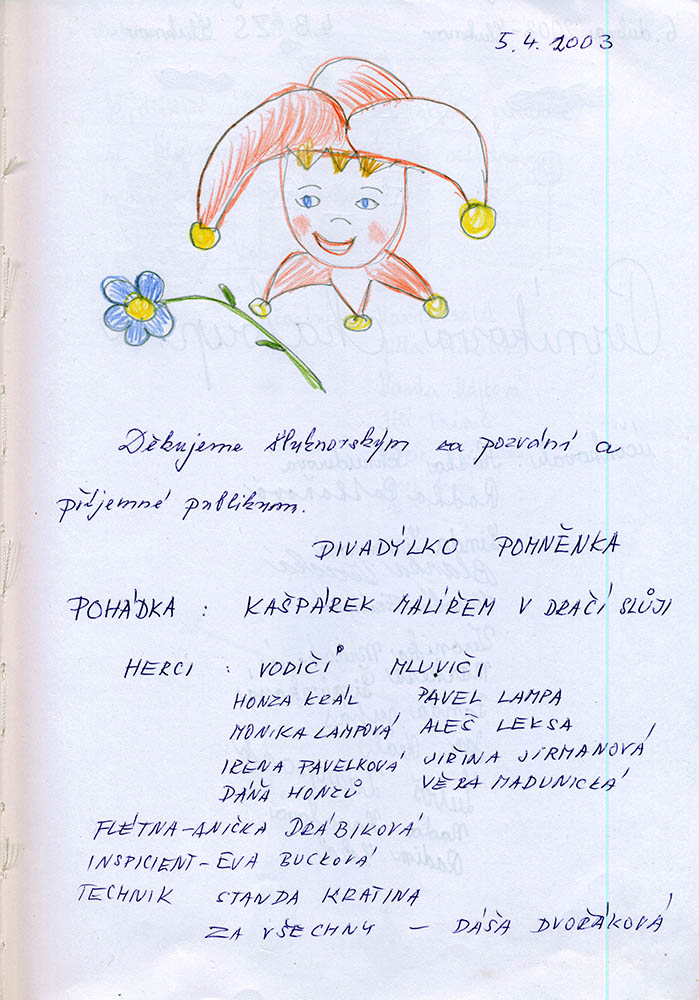 5.4.2003
Děkujeme šluknovským za pozvání a
příjemné publikum.
DIVADÝLKO POMNĚNKA
POHÁDKA : KAŠPÁREK MALÍŘEM V DRAČÍ SLŮJI
HERCI : VODIČI MLUVIČI
HONZA KRÁL PAVEL LAMPA
MONIKA LAMPOVÁ ALEŠ LEKSA
IRENA PAVELKOVÁ JIŘINA JIRMANOVÁ
DÁŇA HONZŮ VĚRA MADUNICKÁ
FLÉTNA-ANIČKA DRÁBIKOVÁ
INSPICIENT-EVA BUCKOVÁ
TECHNIK STANDA KRATINA
ZA VŠECHNY - DÁŠA DVOŘÁKOVÁ